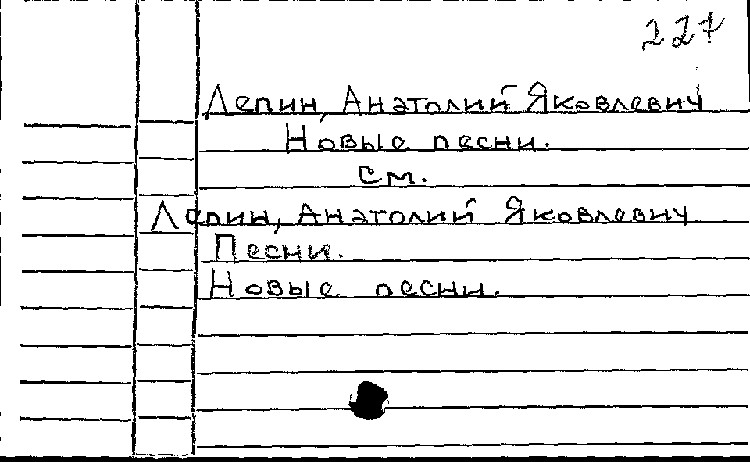 227
Лепин, Анатолий Яковлевич
Новые песни.
см.
Лепин, Анатолий Яковлевич
Песни.
Новые песни.